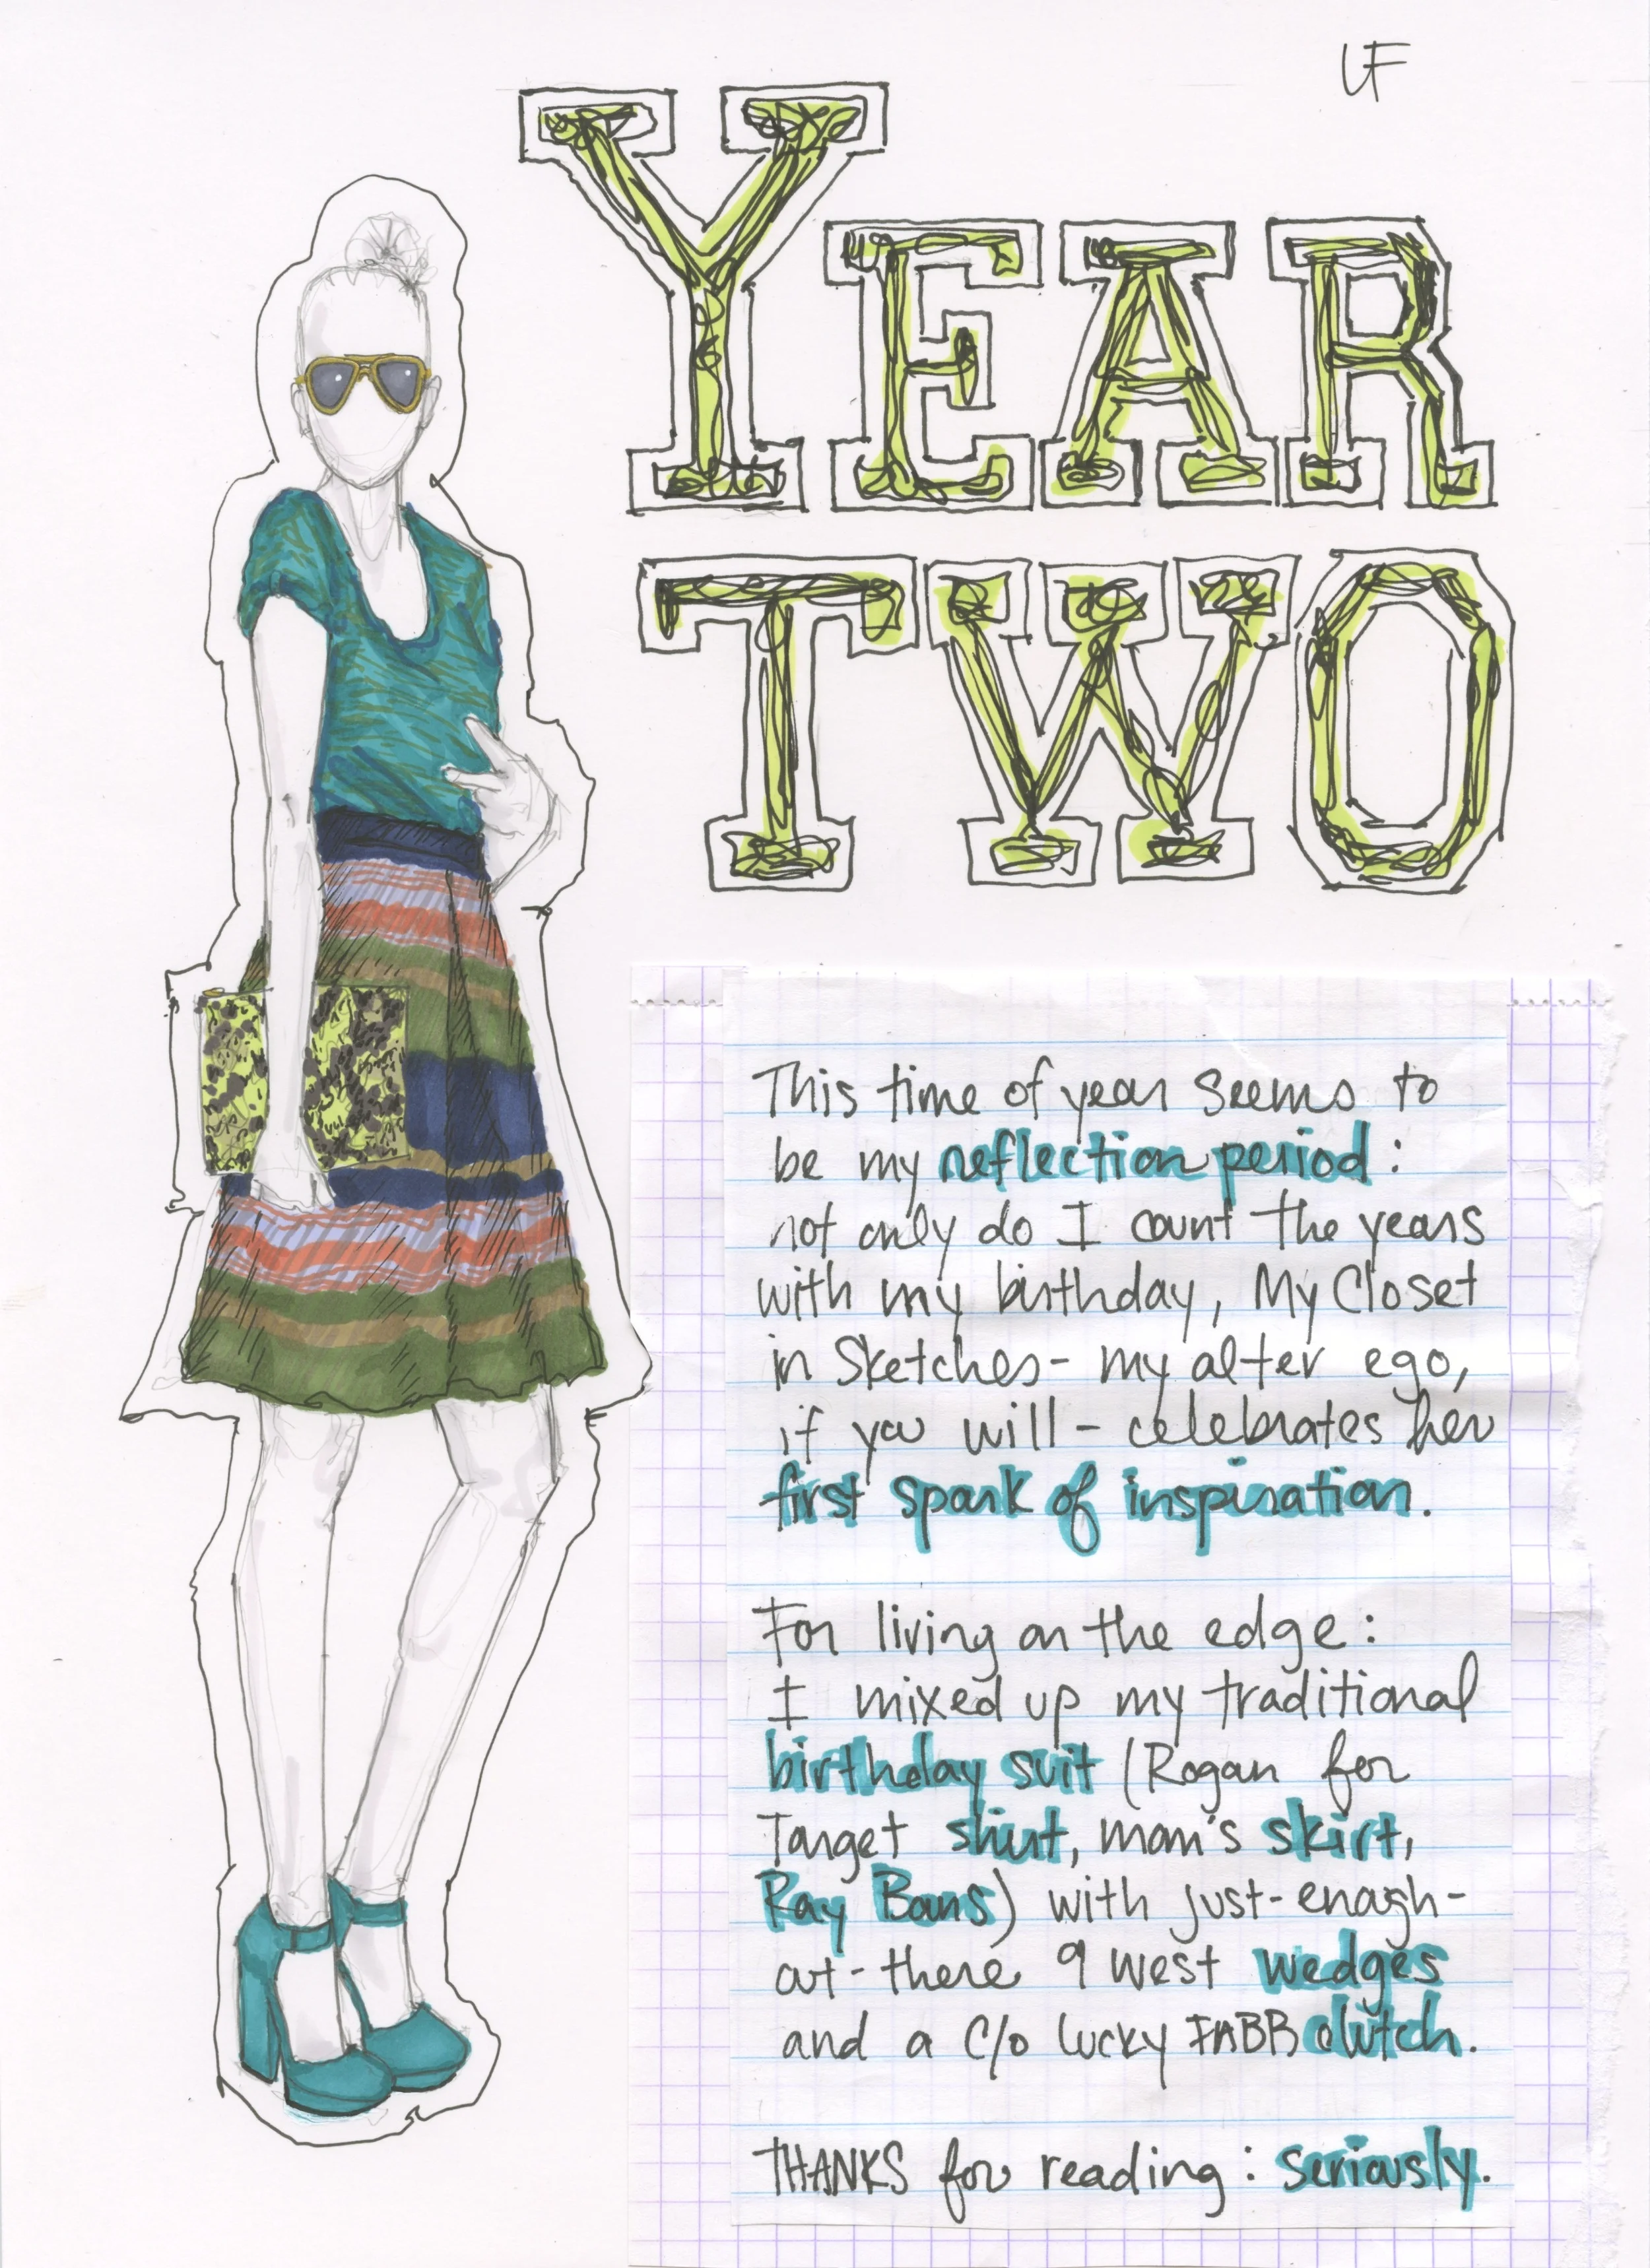 LF
YEAR
TWO
This time of year seems to
be my reflection period:
not only do I count the years
with my birthday, My Closet
in Sketches - my alter ego,
if you will - celebrates her
first spark of inspiration.
For living on the edge:
I mixed up my traditional
birthday suit (Rogan for
Target shirt, mom's skirt,
Ray Bans) with just-enough-
out-there 9 West wedges
and a c/o Lucky FABB clutch.
THANKS for reading: seriously.